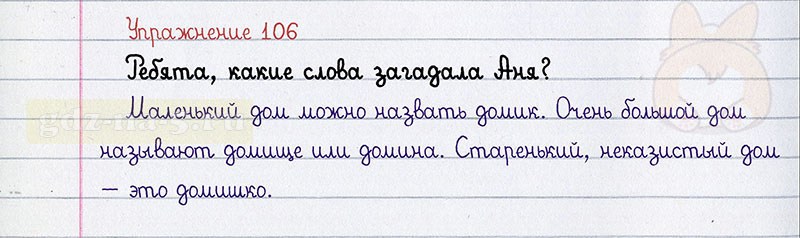 Упражнение 106
Ребята, какие слова загадала Аня?
Маленький дом можно назвать домик. Очень большой дом
называют домище или домина. Старенький, неказистый дом
– это домишко.